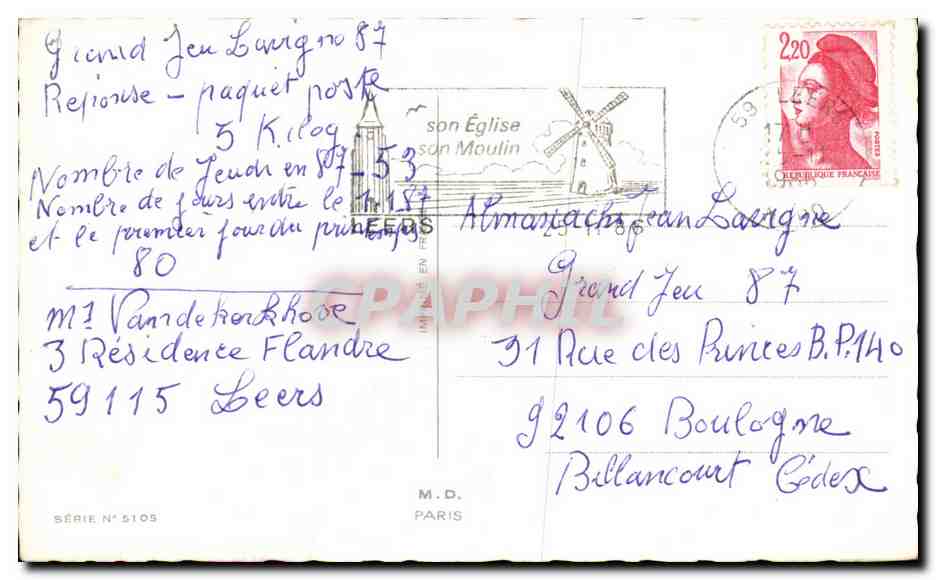 Grand Jeu Lavigne 87
Reponse - paquet poste
5 Kilog
Nombre de Jeudi en 87 - 53
Nombre de jours entre le 1.1.87
et le premier jour du printemps
80
Mr Vandekerkhove
3 Résidence Flandre
59115 Leers
son Église
son Moulin
LEERS
2,20
POSTES
REPUBLIQUE FRANCAISE
59 LEERS
Almanachs Jean Lavigne
Grand Jeu 87
31 Rue des Princes B.P.140
92106 Boulogne
Billancourt Cédex
CPAPHIL
M.D.
PARIS
SÉRIE N° 5105